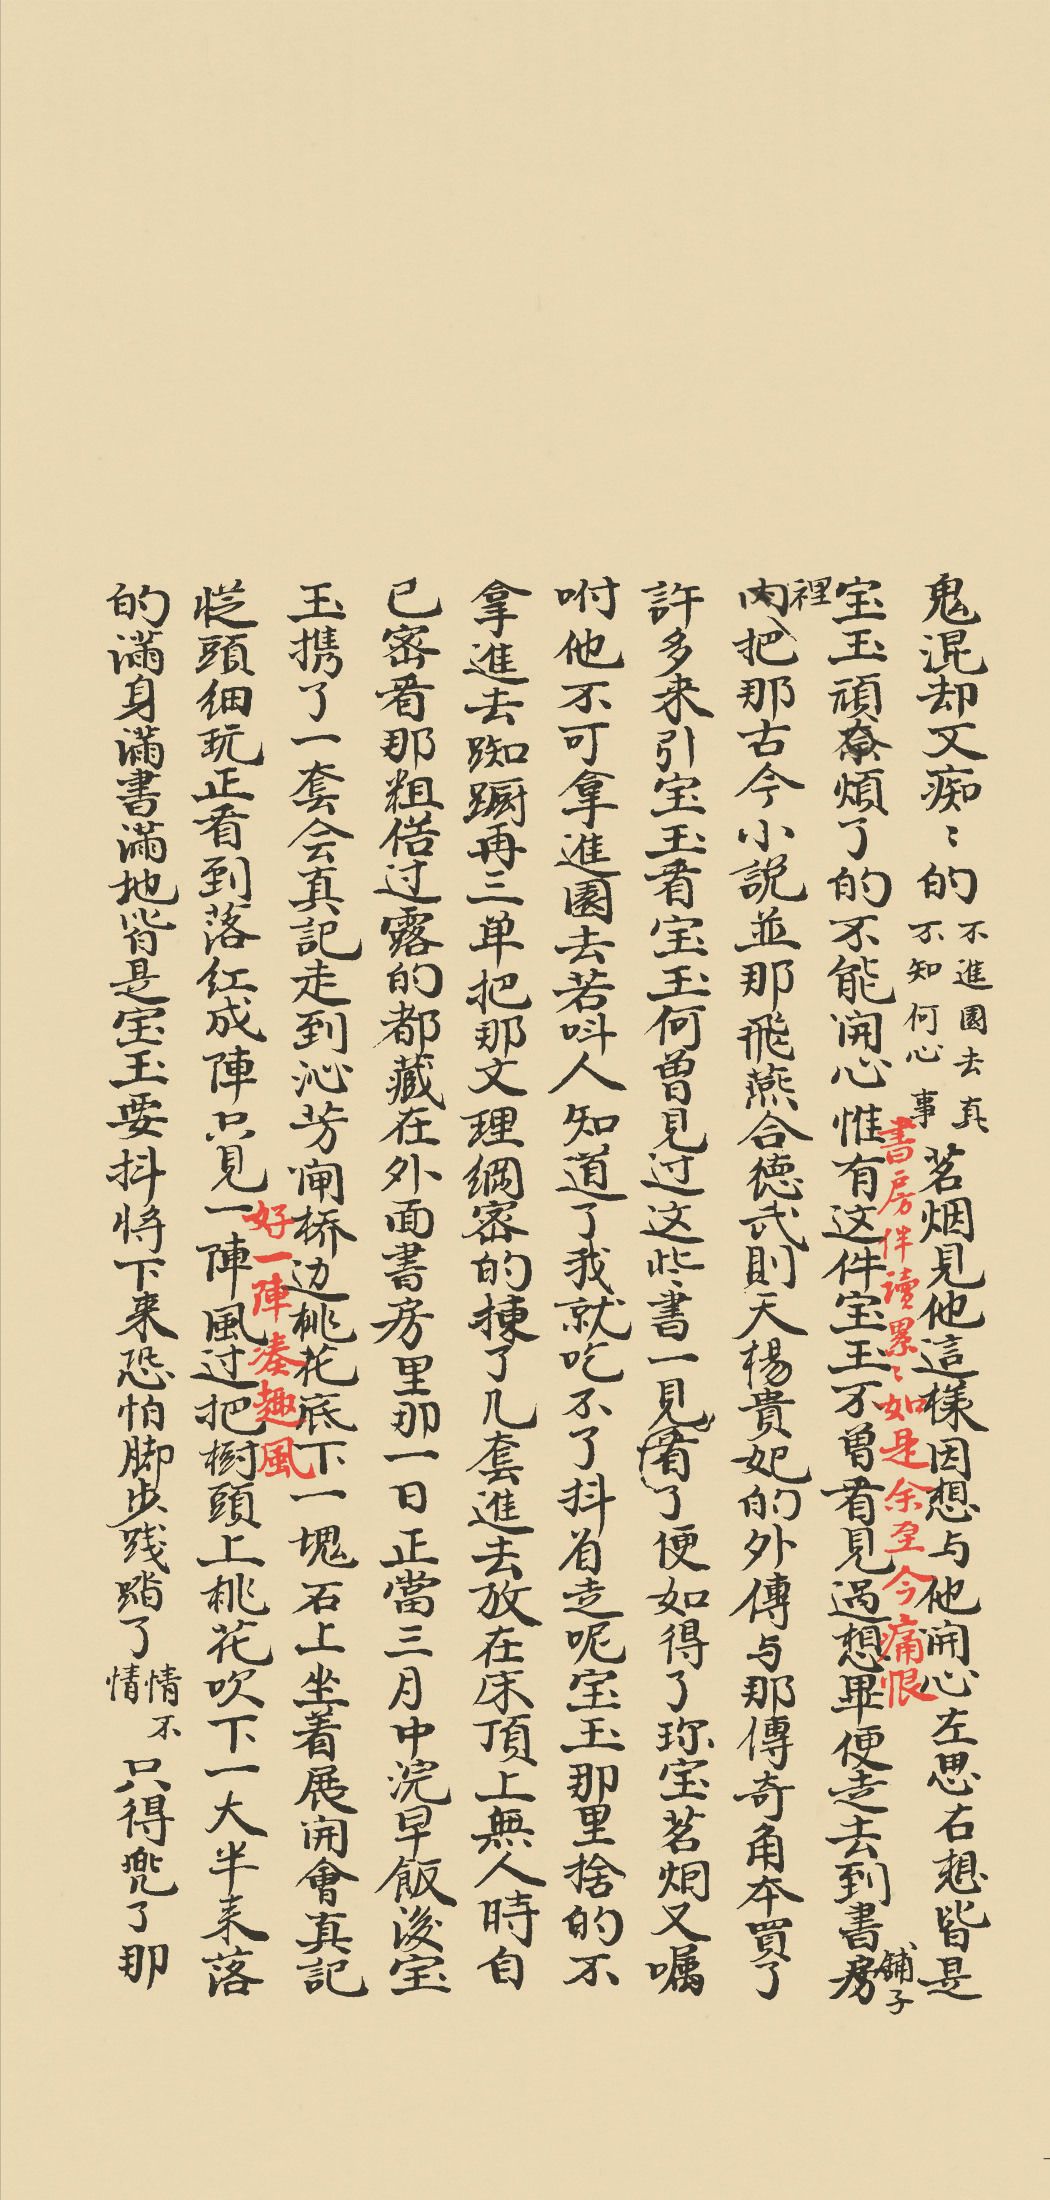 鬼混却又痴〻的不進園去真不知何心事茗烟見他這樣因想与他開心左思右想皆是
書房伴讀累〻如是余至今痛恨
宝玉頑煩了的不能開心惟有这件宝玉不曽看見過想畢便走去到書房
舖子
裡
内把那古今小說並那飛燕合德武則天楊貴妃的外傳与那傳奇角本買了
許多来引宝玉看宝玉何曽見过这些書一見看了便如得了珎宝茗烟又嘱
咐他不可拿進園去若呌人知道了我就吃不了抖着走呢宝玉那里捨的不
拿進去踟蹰再三单把那文理綱密的揀了几套進去放在床頂上無人時自
已密看那粗俗过露的都藏在外面書房里那一日正當三月中浣早飯後宝
玉携了一套会真記走到沁芳闸桥边桃花底下一塊石上坐着展開會真記
好一陣凑趣風
從頭细玩正看到落红成陣只見一陣風过把樹頭上桃花吹下一大半来落
的滿身滿書滿地皆是宝玉要抖将下来恐怕脚步践踏了情不情只得兠了那